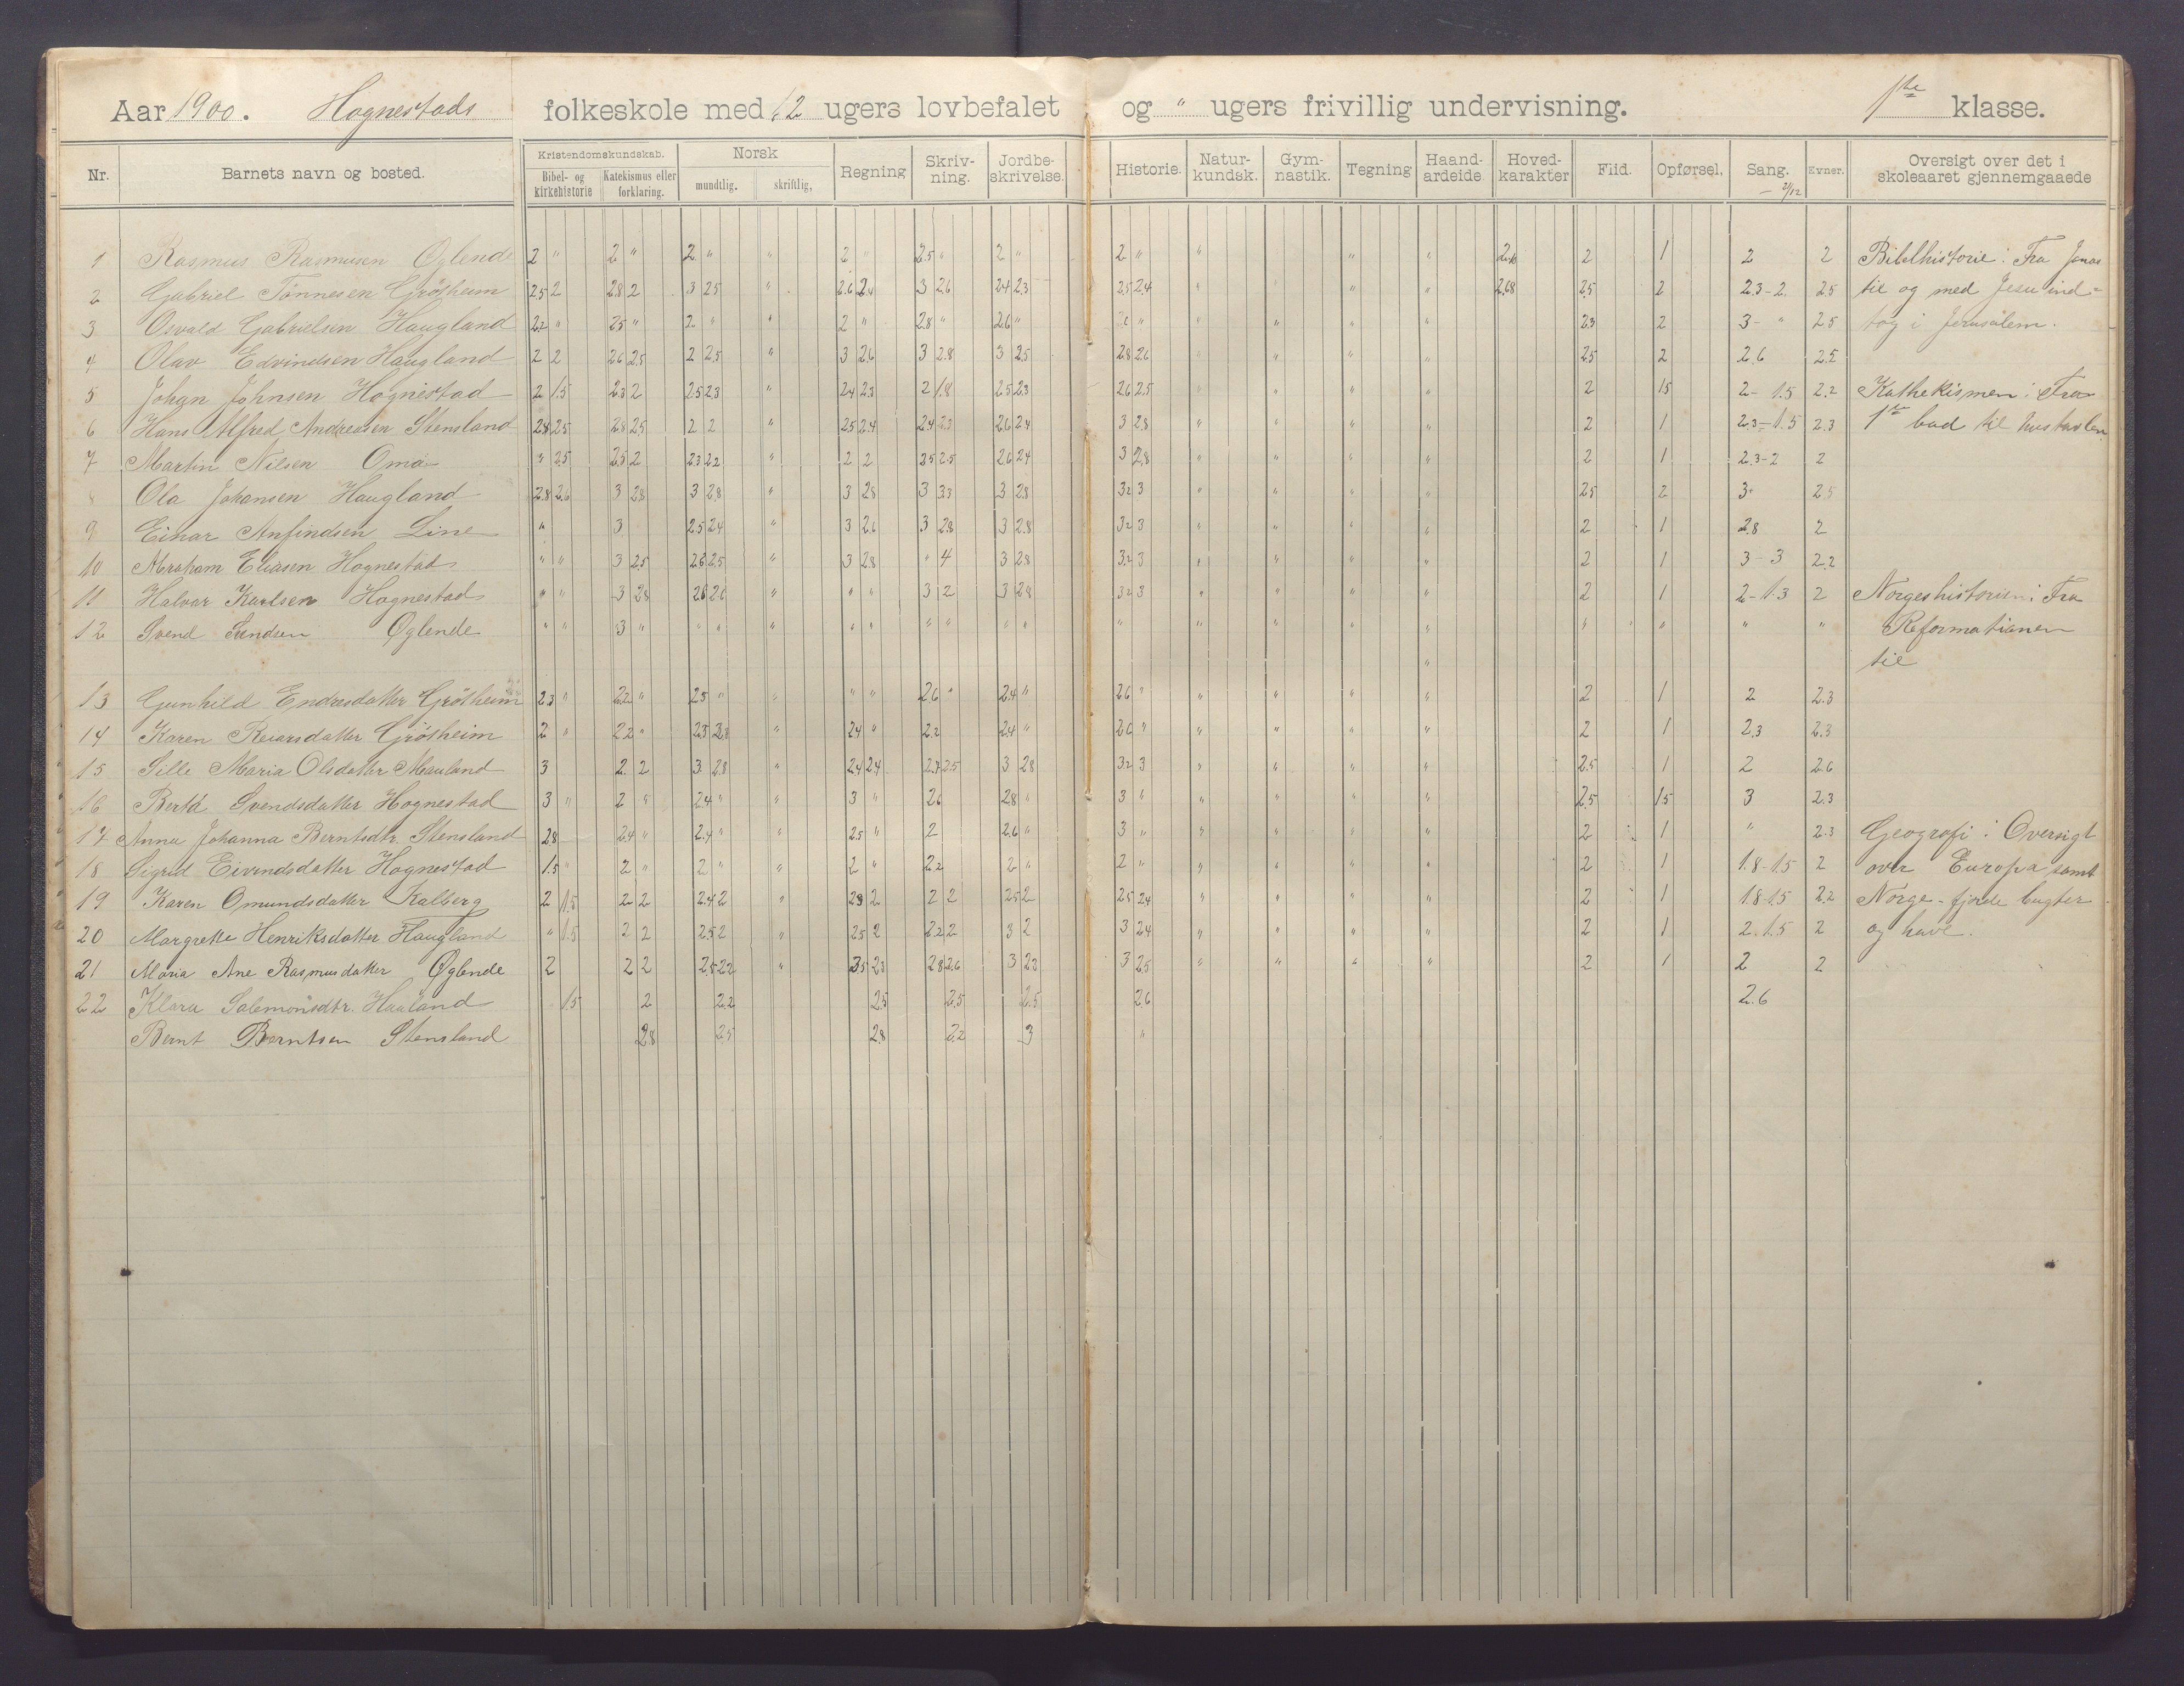 Aar 1900. Hognestads folkeskole med 12 ugers lovbefalet og " ugers frivillig undervisning. 1ste klasse.
Nr. Barnets navn og bosted. Kristendomskundskab. Bibel- og kirkehistorie Katekismus eller forklaring. Norsk mundtlig. skriftlig, Regning Skriv-ning. Jordbe-skrivelse. Historie. Natur-kundsk. Gym-nastik. Tegning Haand-arbeide Hoved-karakter Flid. Opførsel. Sang. Evner. Oversigt over det i skoleaaret gjennemgaaede
1 Rasmus Rasmusen Øglend 2 " 2 " 2 " " 2 " 2.5 " 2 " 2 " " " " 2 1 2 2 Bibelhistorie: Fra Jonas
2 Gabriel Tønnesen Grötheim 2.5 2 2.8 2 3 2.5 " 2.6 2.4 3 2.6 2.4 2.3 2.5 2.4 " " " " 2.68 2.5 2 2.3-2. 2.5 til og med Jesu ind-
3 Osvald Gabrielsen Haugland 2.2 " 2.5 " 2 " " 2 " 2.8 " 2.6 " " " " " 2.3 2 3- " 2.5 tog i Jerusalem.
4 Olav Edvindsen Haugland 2 2 2.6 2.5 2 2.5 " 3 2.6 3 2.8 3 2.5 2.8 2.6 " " " " 2.5 2 2.6 2.5
5 Johan Johnsen Hognestad 2 1.5 2.3 2 2.5 2.3 " 2.4 2.3 2 1.8 2.5 2.3 2.6 2.5 " " " " 2 1.5 2- 1.5 2.2 Kathekismen: Fra
6 Hans Alfred Andreasen Stensland 2.8 2.5 2.8 2.5 2 2 " 2.5 2.4 2.4 2.3 2.6 2.4 3 2.8 " " " " 2 1 2.3-1.5 2.3 1ste bud til hustavlen
7 Martin Nilsen Oma " 2.5 2.5 2 2.3 2.2 " 2 2 2.5 2.5 2.6 2.4 3 2.8 " " " " 2 1 2.3-2 2
8 Ola Johansen Haugland 2.8 2.6 3 2.8 3 2.8 " 3 2.8 3 3.3 3 2.8 3.2 3 " " " " 2.5 2 3- 2.5
9 Einar Anfindsen Line " 3 2.5 2.4 " 3 2.6 3 2.8 3 2.8 3.2 3 " " " " 2 1 2.8 2
10 Abraham Eliasen Hognestad " " 3 2.5 2.6 2.5 " 3 2.8 " 4 3 2.8 3.2 3 " " " " 2 1 3-3 2.2
11 Halvar Karlsen Hognestad " " 3 2.8 2.6 2.6 " " " 3 2 3 2.8 3.2 3 " " " " 2 1 2-1.3 2 Norgeshistorien: Fra
12 Svend Sendsen Øglende " " 3 " " " " " " " " " " " " " " " " " " " Reformationen
til
13 Gunhild Endresdatter Grötheim 2.3 " 2.2 " 2.5 " " " " 2.6 " 2.4 " 2.6 " " " " " 2 1 2 2.3
14 Karen Reiarsdatter Grötheim 2 " 2.2 " 2.5 2.8 " 2.4 " 2.2 2.4 " 2.6 " " " " " 2 1 2.3 2.3
15 Sille Maria Olsdatter Mauland 3 2. 2 3 2.8 " 2.4 2.4 2.7 2.5 3 2.8 3.2 3 " " " " 2.5 1 2 2.6
16 Berta Svendsdatter Hognestad 3 " 2 " 2.4 " " 3 " 2.6 2.8 " 3 " " " " " 2.5 1.5 3 2.3
17 Anna Johanna Berntsdtr. Stensland 2.8 2.4 " 2.4 " " 2.5 " 2 2.6 " 3 " " " " " 2 1 " 2.3 Geografi: Oversigt
18 Sigrid Eivindsdatter Hognestad 1.5 " 2 " 2 " " 2 " 2.2 2 " 2 " " " " " 2 1 1.8-1.5 2 over Europa samt
19 Karen Omundsdatter Kalberg 2 1.5 2 2 2.4 2 " 2.3 2 2 2 2.5 2 2.5 2.4 " " " " 2 1 1.8-1.5 2.2 Norge - fjorde bugter
20 Margrethe Henriksdatter Haugland " 1.5 2 2 2.5 2 2.5 2 2.2 2 3 2 3 2.4 " " " " 2 1 2-1.5 2 og have.
21 Maria Ane Rasmusdatter Øglende 2 2 2 2.5 2.2 " 2.5 2.3 2.8 2.6 3 2.3 3 2.5 " " " " 2 1 2 2
22 Klara Salemonsdtr. Hauland 1.5 2 2.2 2.5 2.5 2.5 2.6 2.6
Bernt Berntsen Stensland 2.8 2.5 2.8 2.2 3 "